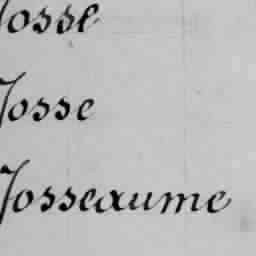 Josse
Josse
Josseaume